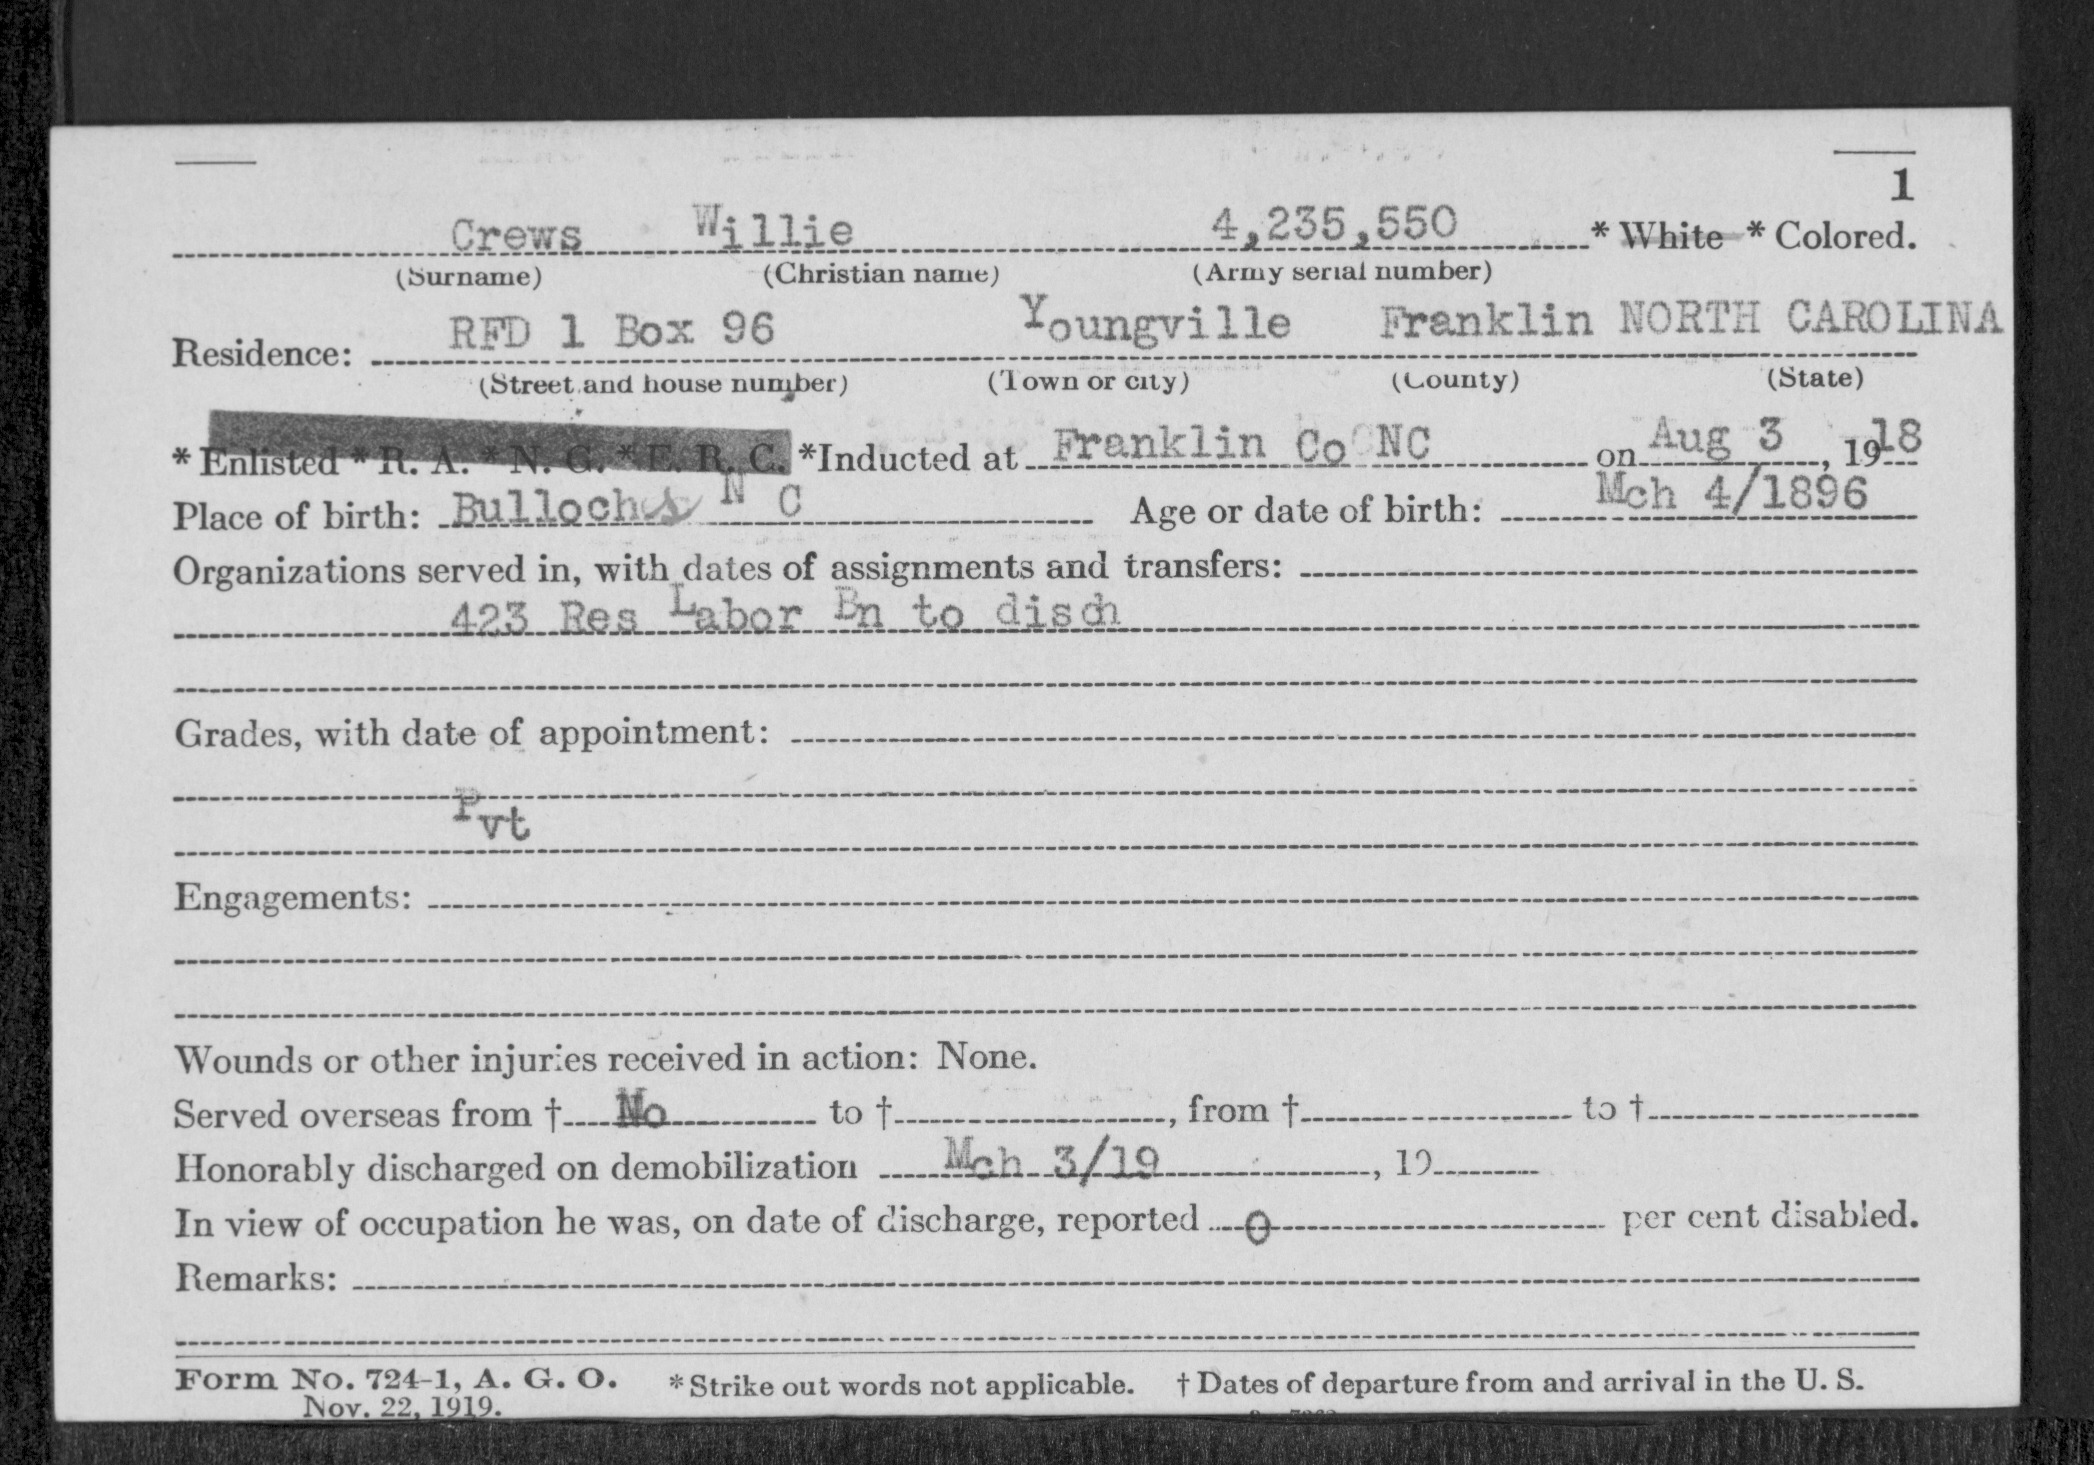 1
Crews Willie 4,235,550 * White * Colored.
(Surname) (Christian name) (Army serial number)
Residence: RFD 1 Box 96 Youngville Franklin NORTH CAROLINA
(Street and house number) (Town or city) (County) (State)
* Enlisted * R. A. * N. G. * E. R. C. *Inducted at Franklin Co NC on Aug 3, 1918
Place of birth: Bullochs N C Age or date of birth: Mch 4/1896
Organizations served in, with dates of assignments and transfers:
423 Res Labor Bn to disch
Grades, with date of appointment:
Pvt
Engagements:
Wounds or other injuries received in action: None.
Served overseas from † No to †, from † to †
Honorably discharged on demobilization Mch 3/19, 19
In view of occupation he was, on date of discharge, reported 0 per cent disabled.
Remarks:
Form No. 724-1, A. G. O. * Strike out words not applicable. † Dates of departure from and arrival in the U. S.
Nov. 22, 1919.